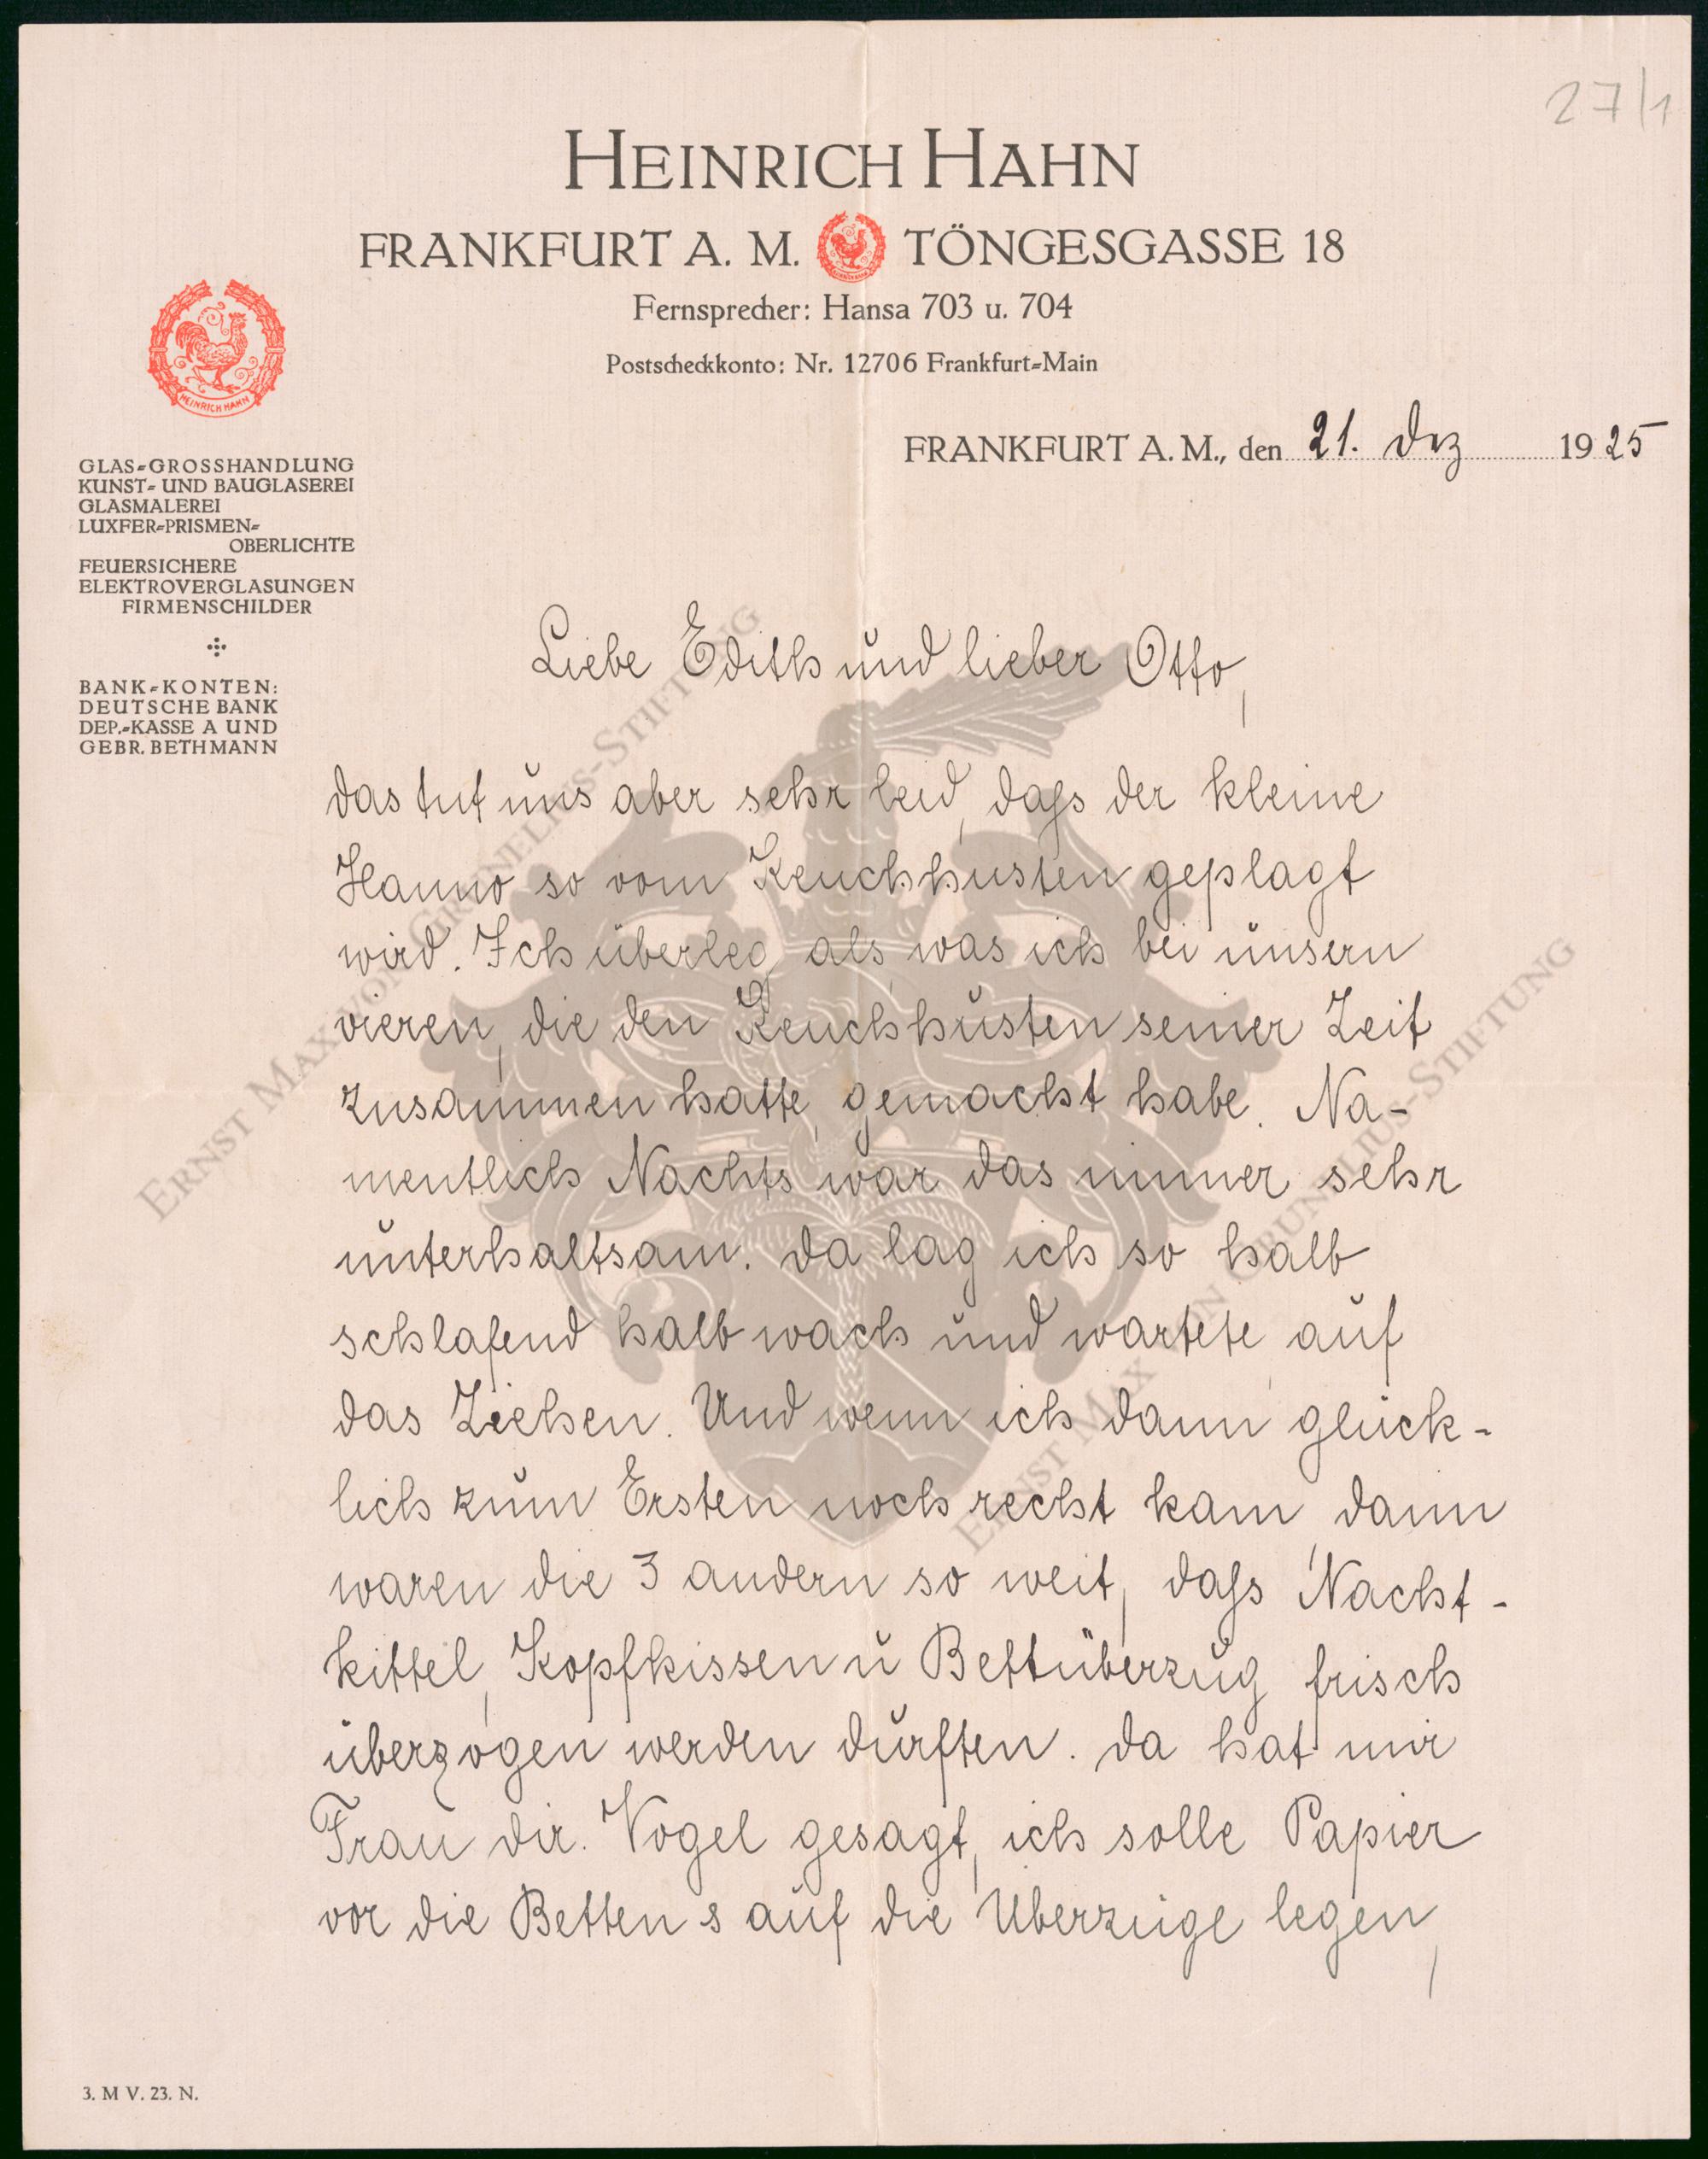 27/1
HEINRICH HAHN
FRANKFURT A. M. TÖNGESGASSE 18
Fernsprecher: Hansa 703 u. 704
Postscheckkonto: Nr. 12706 Frankfurt-Main
HEINRICH HAHN
FRANKFURT A. M., den 21. Dez 1925
GLAS-GROSSHANDLUNG
KUNST- UND BAUGLASEREI
GLASMALEREI
LUXFER-PRISMEN-
OBERLICHTE
FEUERSICHERE
ELEKTROVERGLASUNGEN
FIRMENSCHILDER
BANK-KONTEN:
DEUTSCHE BANK
DEP.-KASSE A UND
GEBR. BETHMANN
Liebe Edith und lieber Otto,
das tut uns aber sehr leid, dass der kleine
Hanno so vom Keuchhusten geplagt
wird. Ich überleg als, was ich bei unsern
vieren, die den Keuchhusten seiner Zeit
zusammen hatte, gemacht habe. Na-
mentlich Nachts war das immer sehr
unterhaltsam. Da lag ich so halb
schlafend halb wach und wartete auf
das Ziehen. Und wenn ich dann glück-
lich zum Ersten noch recht kam, dann
waren die 3 andern so weit, dass Nacht-
kittel, Kopfkissen u Bettüberzug frisch
überzogen werden durften. Da hat mir
Frau Dir. Vogel gesagt, ich solle Papier
vor die Betten & auf die Überzüge legen,
3. M V. 23. N.
ERNST MAX VON GRUNELIUS-STIFTUNG
ERNST MAX VON GRUNELIUS-STIFTUNG